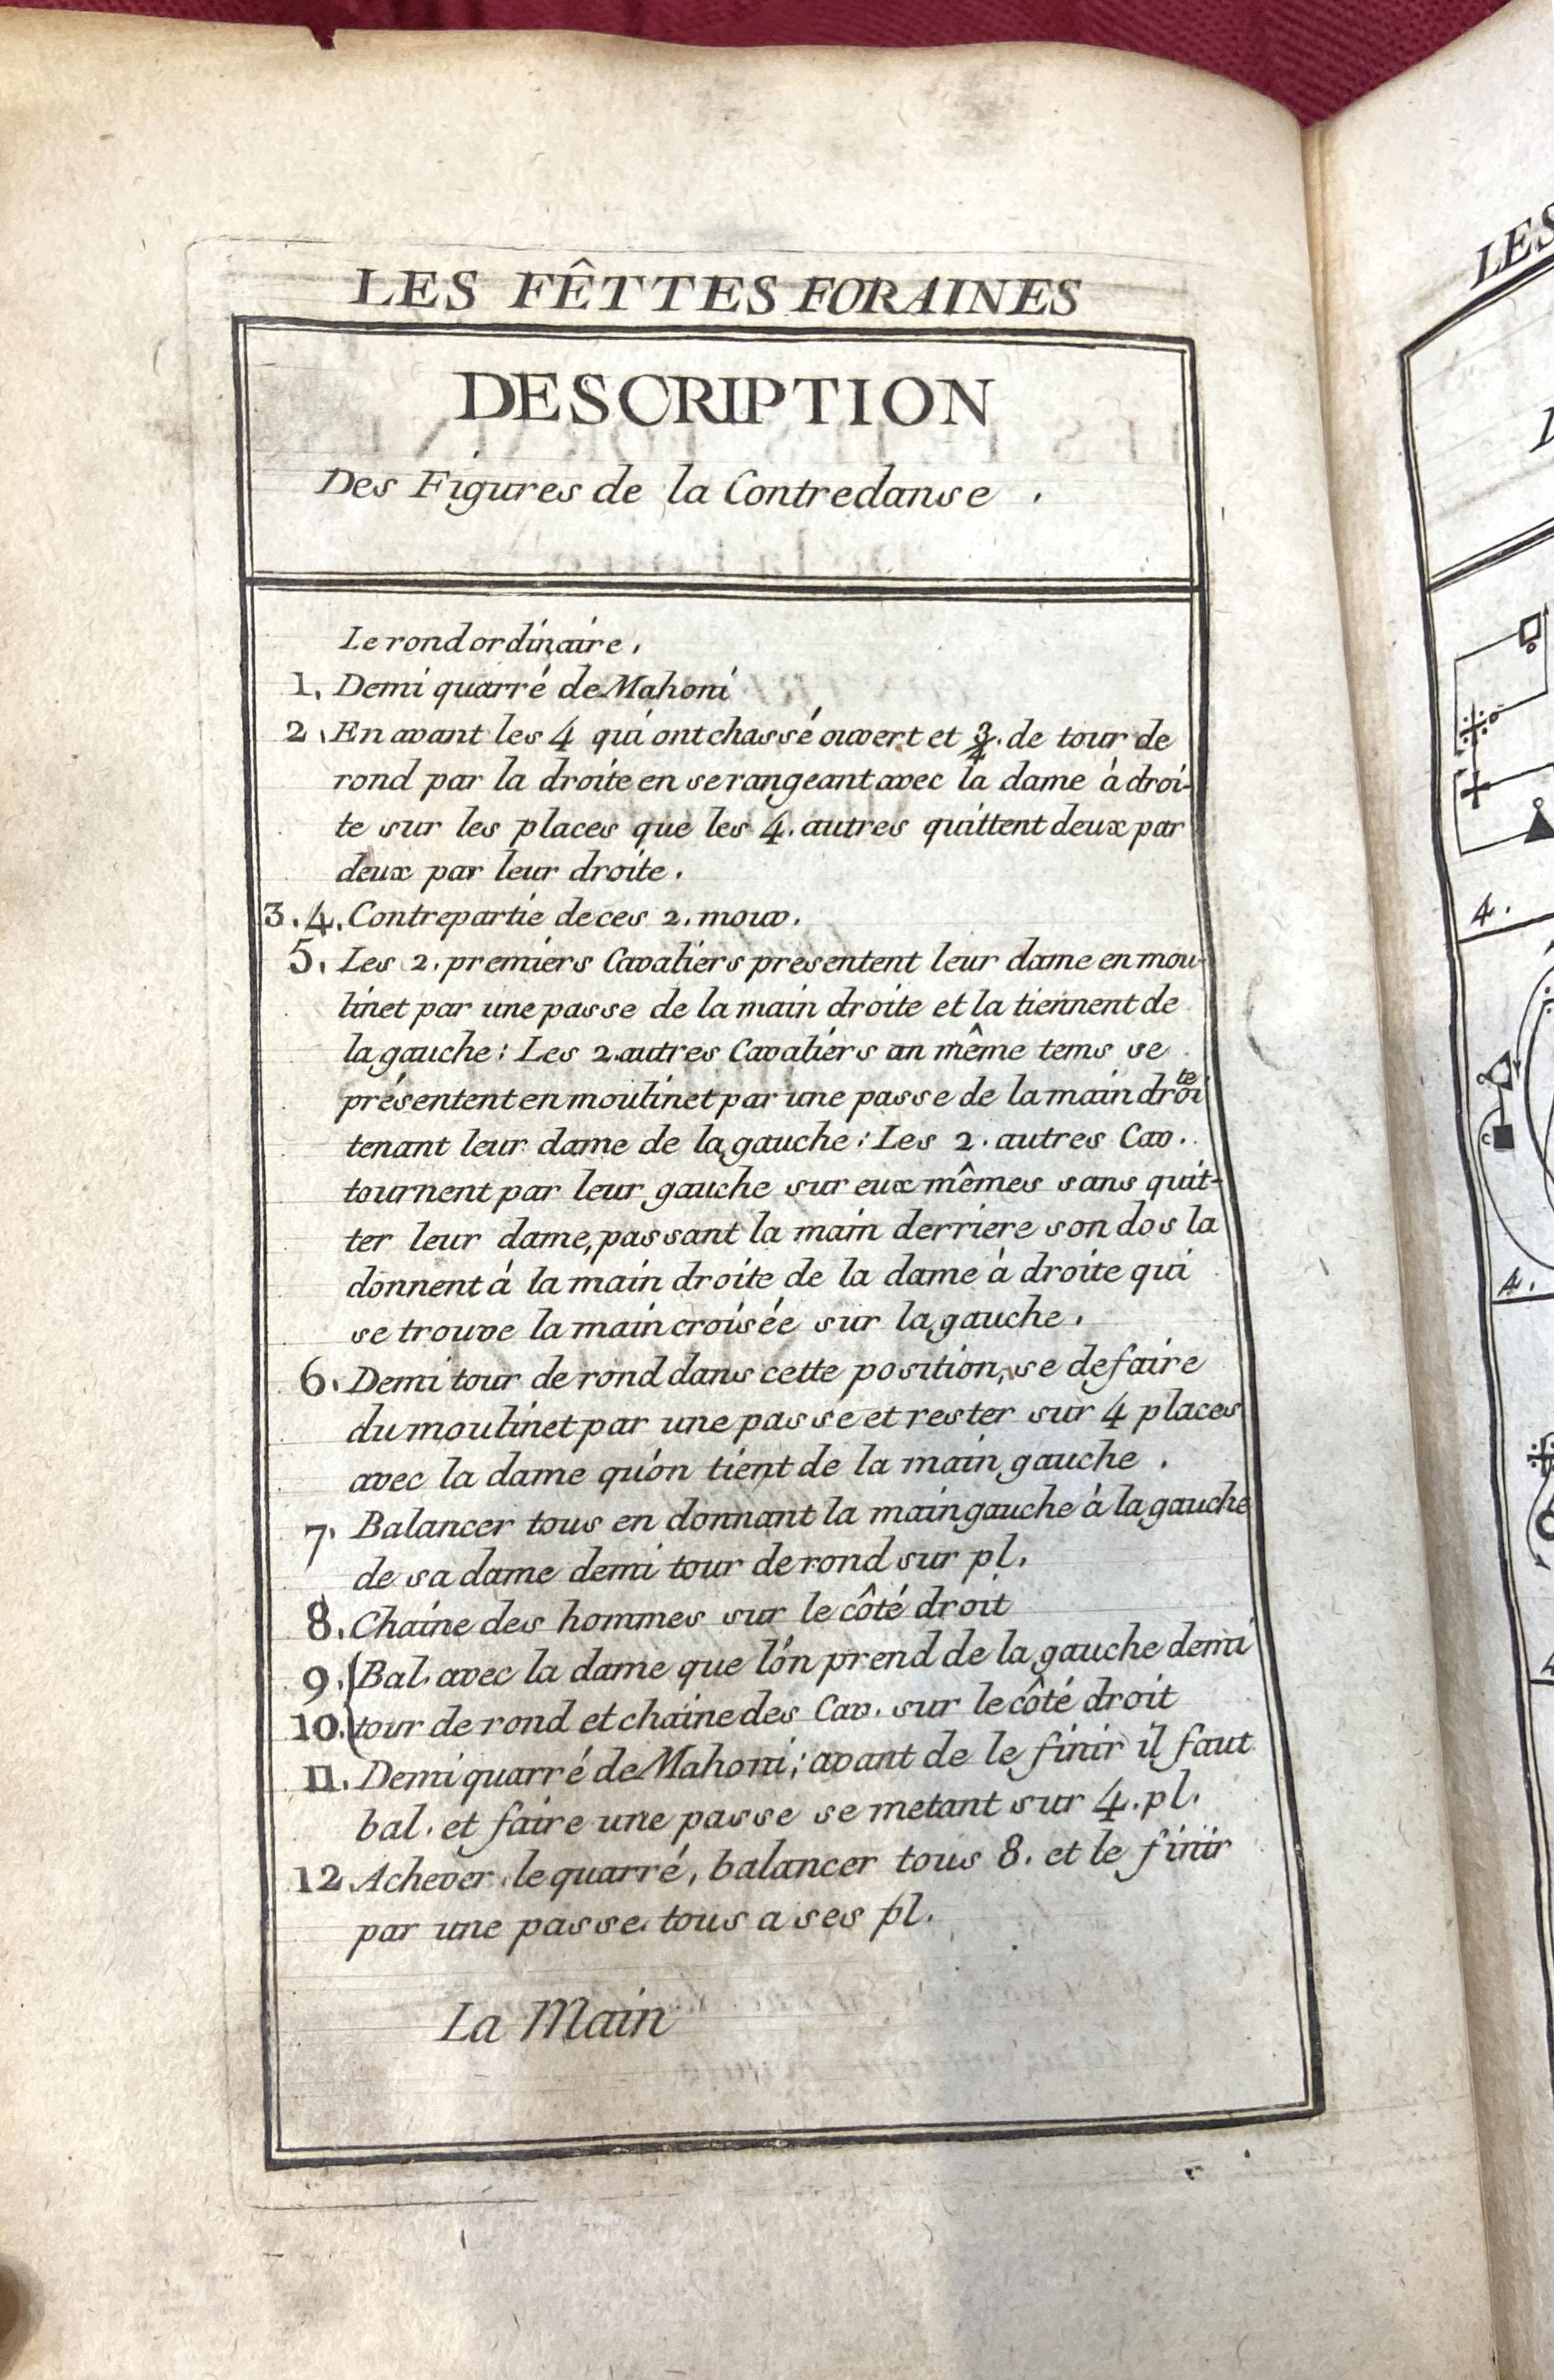 LES FÊTTES FORAINES
DESCRIPTION
Des Figures de la Contredanse .
Le rond ordinaire.
1. Demi quarré de Mahoni
2. En avant les 4 qui ont chassé ouvert et 3/4. de tour de
rond par la droite en se rangeant avec la dame à droi-
te sur les places que les 4. autres quittent deux par
deux par leur droite.
3. 4. Contrepartie de ces 2. mouv.
5. Les 2. premiers Cavaliers presentent leur dame en mou-
linet par une passe de la main droite et la tiennent de
la gauche : Les 2. autres Cavaliers an même tems se
présentent en moulinet par une passe de la main droite
tenant leur dame de la gauche : Les 2. autres Cav.
tournent par leur gauche sur eux mêmes sans quit-
ter leur dame, passant la main derriere son dos la
donnent à la main droite de la dame à droite qui
se trouve la main croisée sur la gauche.
6. Demi tour de rond dans cette position, se defaire
du moulinet par une passe et rester sur 4 places
avec la dame qu'on tient de la main gauche .
7. Balancer tous en donnant la main gauche à la gauche
de sa dame demi tour de rond sur pl.
8. Chaine des hommes sur le côté droit
9. (Bal. avec la dame que l'on prend de la gauche demi
10. (tour de rond et chaine des Cav. sur le côté droit
11. Demi quarré de Mahoni ; avant de le finir il faut
bal. et faire une passe se metant sur 4. pl.
12. Achever le quarré, balancer tous 8. et le finir
par une passe tous a ses pl.
La Main
LES
4.
4.